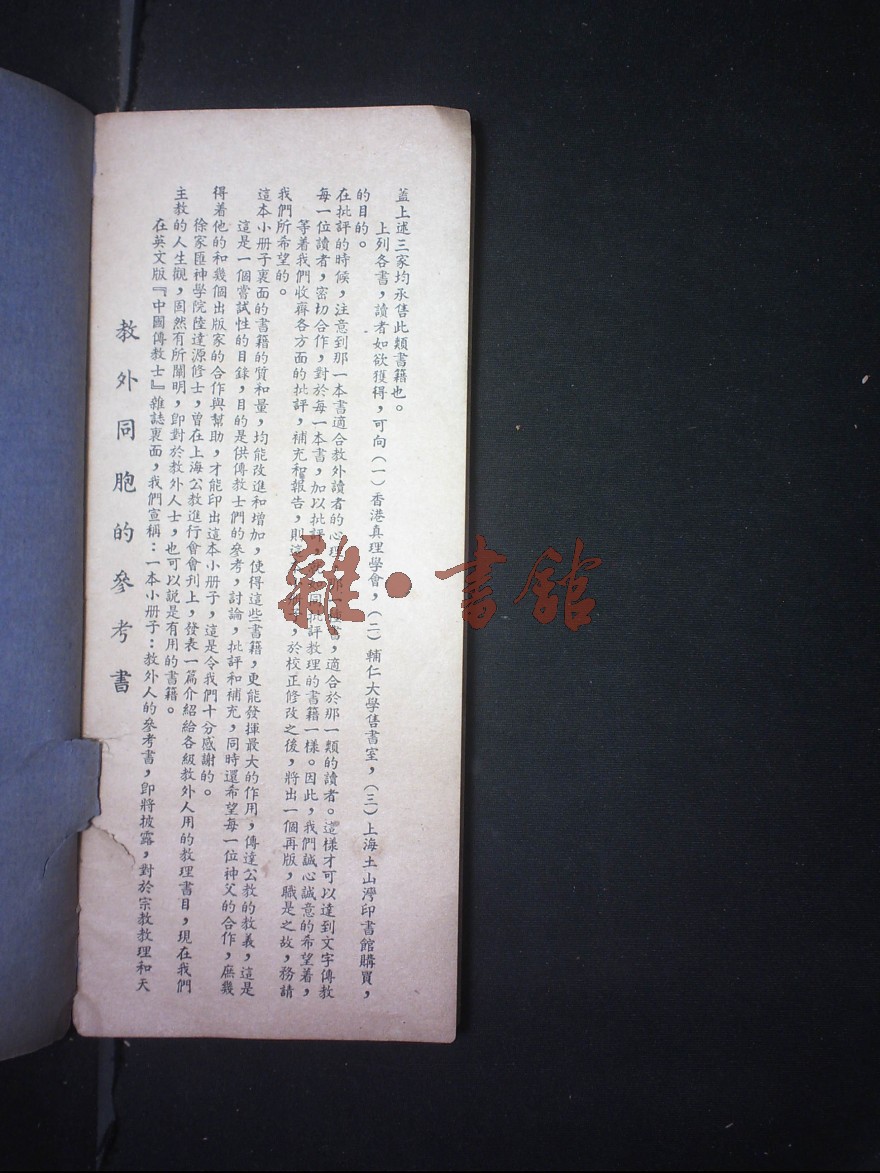 教外同胞的參考書
在英文版『中國傳教士』雜誌裏面，我們宣稱：一本小册子：教外人的參考書，即將披露，對於宗教教理和天
主教的人生觀，固然有所闡明，即對於教外人士，也可以說是有用的書籍。
徐家匯神學院陸達源修士，曾在上海公教進行會會刊上，發表一篇介紹給各級教外人用的教理書目，現在我們
得着他的和幾個出版家的合作與幫助，才能印出這本小册子，這是令我們十分感謝的。
這是一個嘗試性的目錄，目的是供傳教士們的參考，討論，批評和補充，同時還希望每一位神父的合作，庶幾
這本小册子裏面的書籍的質和量，均能改進和增加，使得這些書籍，更能發揮最大的作用，傳達公教的教義，這是
我們所希望的。
等着我們收齊各方面的批評，補充和報告，則這，於校正修改之後，將出一個再版，職是之故，務請
每一位讀者，密切合作，對於每一本書，加以批評，同批評教理的書籍一樣。因此，我們誠心誠意的希望着，
在批評的時候，注意到那一本書適合教外讀者的心理書，適合於那一類的讀者。這樣才可以達到文字傳教
的目的。
上列各書，讀者如欲獲得，可向（一）香港真理學會，（二）輔仁大學售書室，（三）上海土山灣印書館購買，
蓋上述三家均承售此類書籍也。
雜·書館